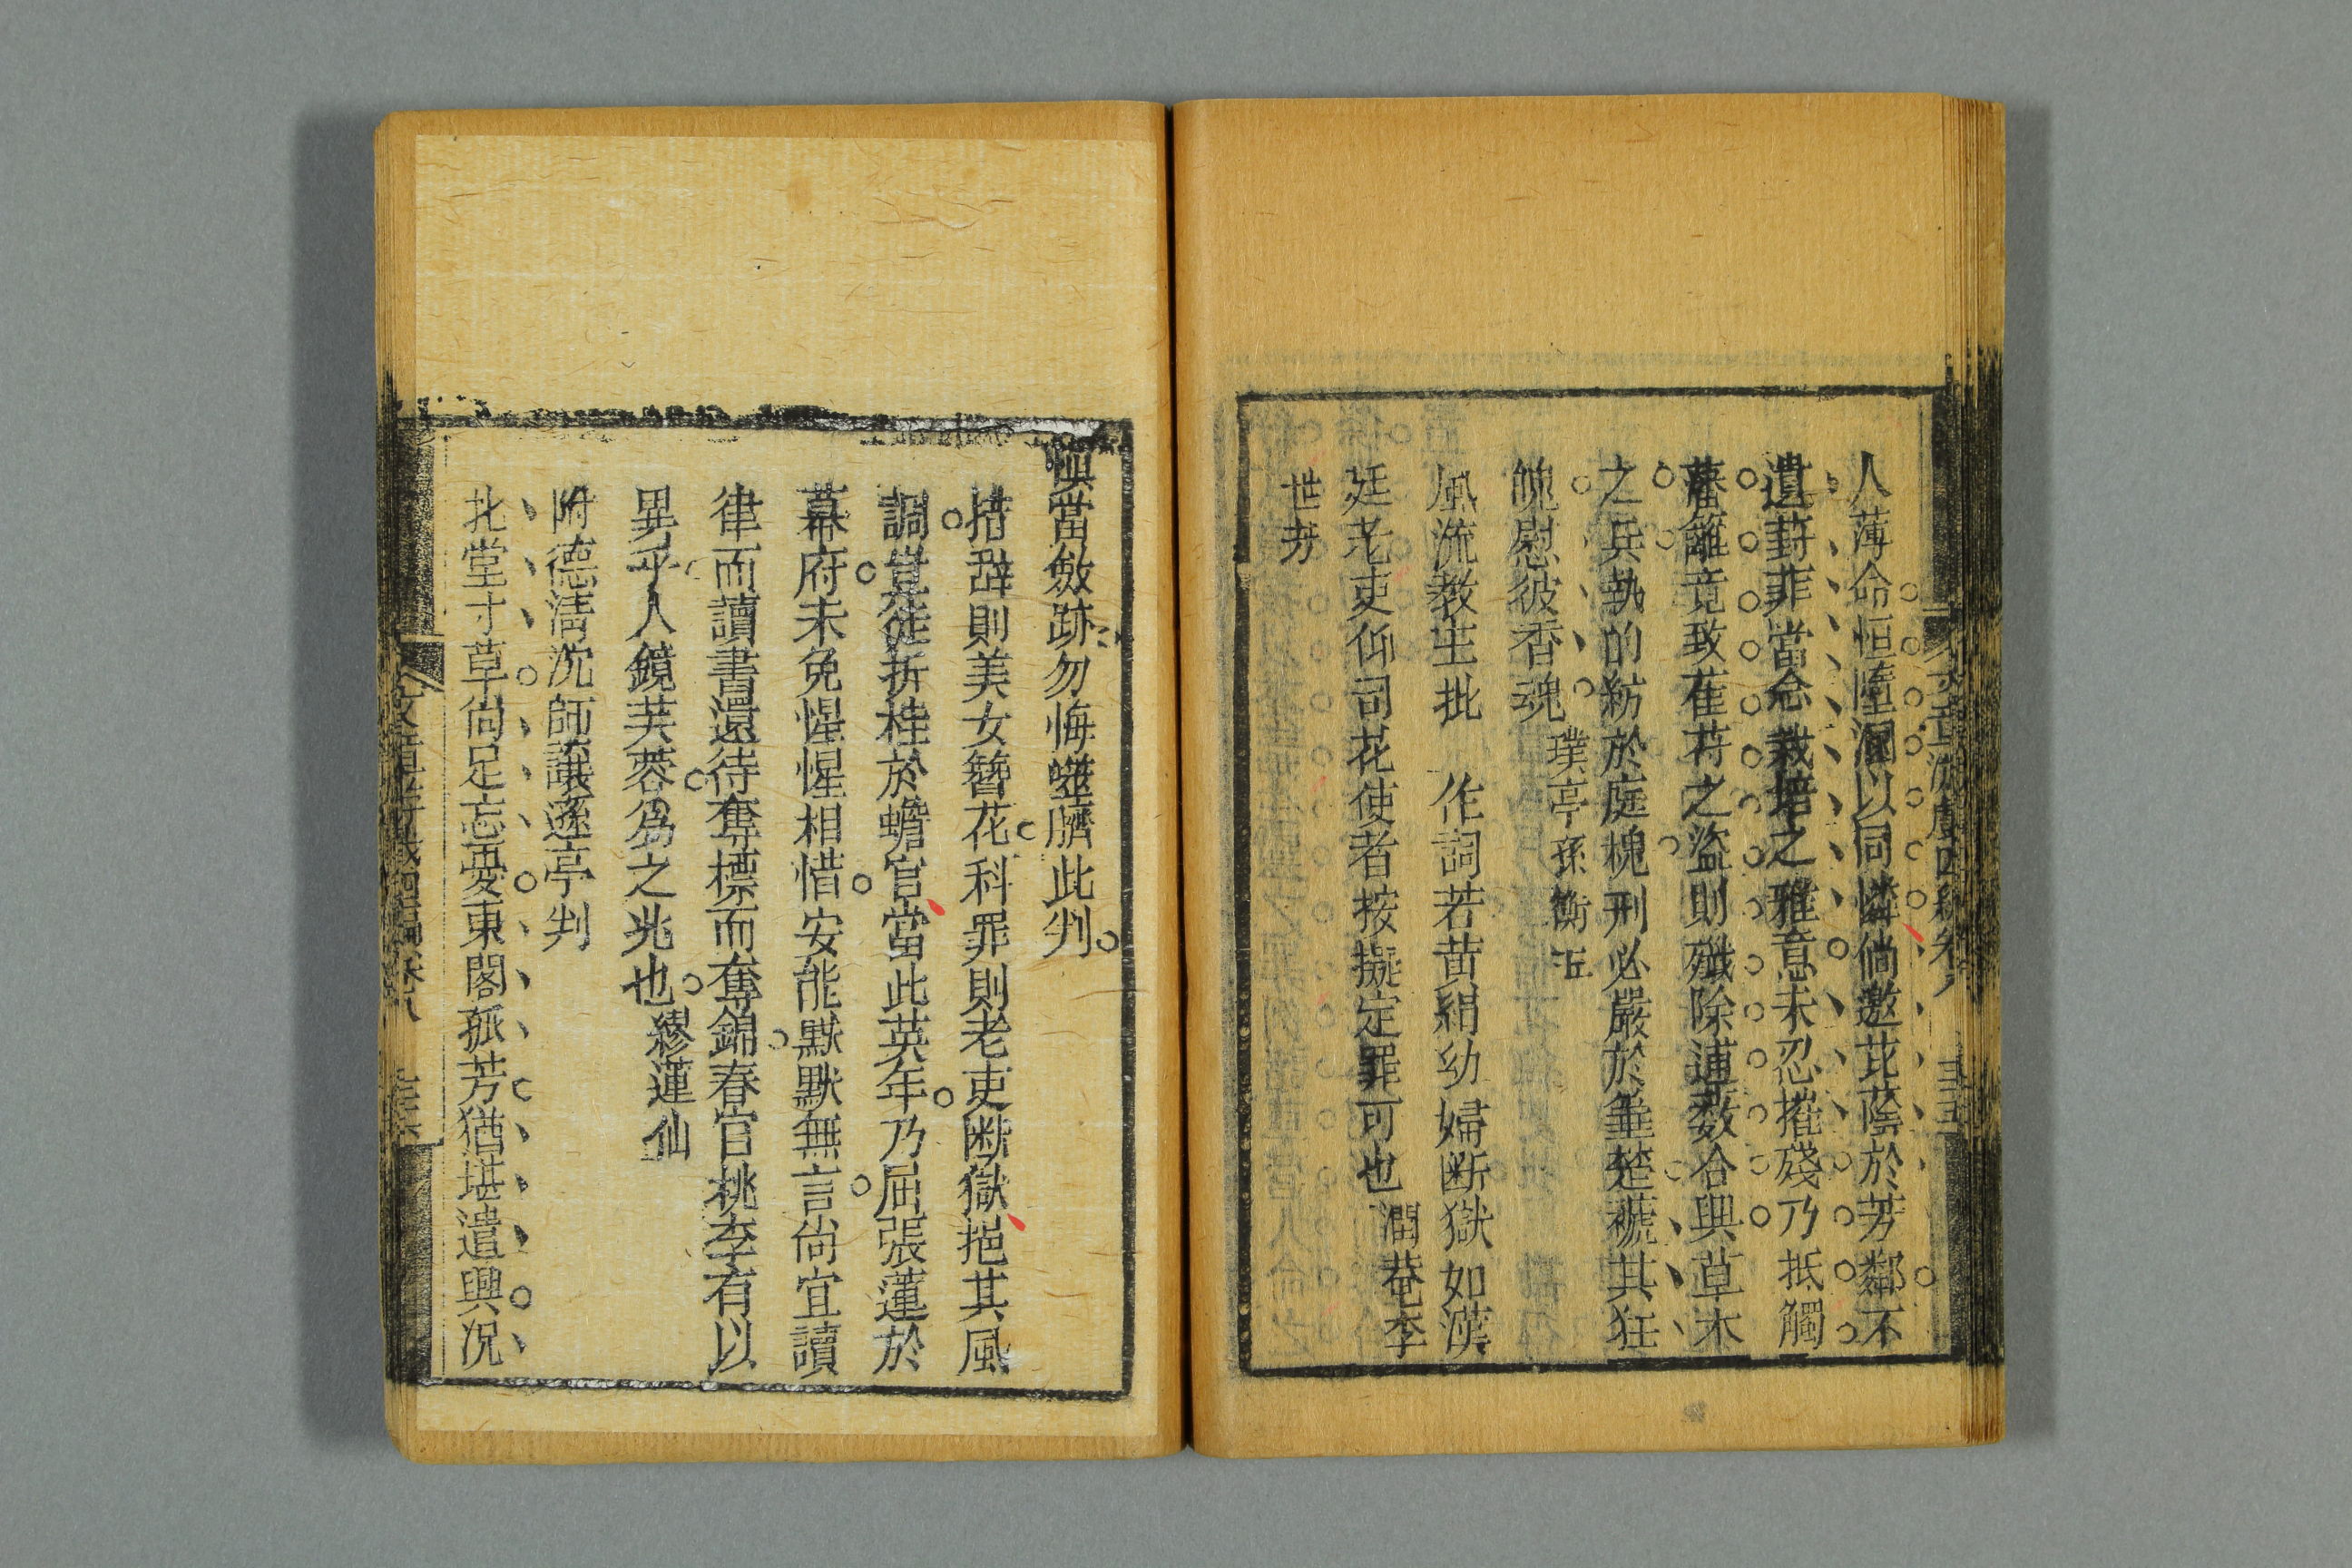 人薄命恒墮溷以同憐倘邀茈蔭於芳鄰不
遺葑菲當念栽培之雅意未忍摧殘乃抵觸
藩籬竟致萑苻之盜則殲除逋薮合興草木
之兵執的紡於庭槐刑必嚴於箠楚褫其狂
魄慰彼香魂 璞亭孫衡玉
風流教主批 作詞若黃絹幼婦断獄如漢
廷老吏仰司花使者按擬定罪可也 潤菴李
世芳
當斂跡勿悔噬臍此判
措辭則美女簪花科罪則老吏断獄挹其風
調豈徒折桂於蟾宫當此英年乃屈張蓮於
幕府未免惺惺相惜安能默默無言尙宜讀
律而讀書還待奪標而奪錦春官桃李有以
異乎人鏡芙蓉爲之兆也 繆蓮仙
附德淸沈師議遜亭判
北堂寸草尙足忘憂東閣孤芳猶堪遣興况